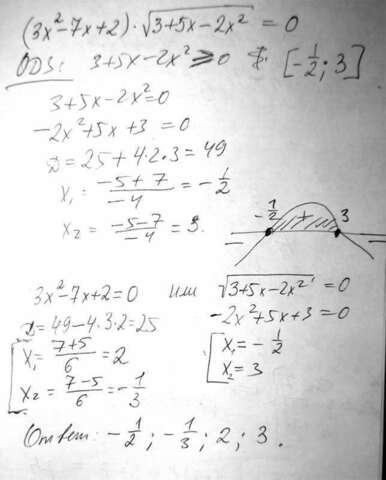 (3x²-7x+2)·√3+5x-2x² = 0
ODS: 3+5x-2x²⩾0 [-1/2; 3]
3+5x-2x²=0
-2x²+5x+3=0
D=25+4·2·3=49
x₁=(-5+7)/-4=-1/2
x₂=(-5-7)/-4=3.
-1/2 + 3
- -
3x²-7x+2=0 или √3+5x-2x²=0
D=49-4·3·2=25 -2x²+5x+3=0
x₁=(7+5)/6=2 x₁=-1/2
x₂=(7-5)/6=-1/3 x₂=3
Ответ: -1/2; -1/3; 2; 3.